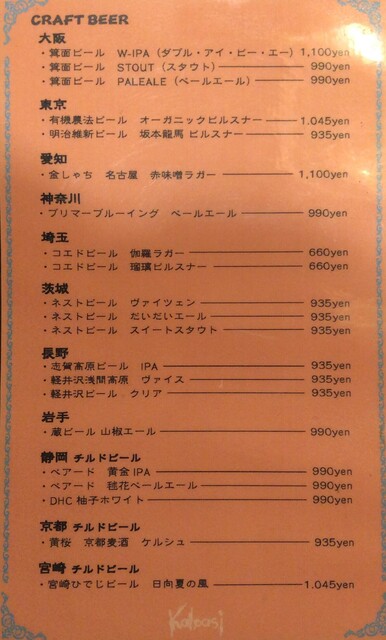 CRAFT BEER
大阪
・箕面ビール W-IPA（ダブル・アイ・ピー・エー） 1,100yen
・箕面ビール STOUT（スタウト） 990yen
・箕面ビール PALEALE（ペールエール） 990yen
東京
・有機農法ビール オーガニックピルスナー 1.045yen
・明治維新ビール 坂本龍馬 ピルスナー 935yen
愛知
・金しゃち 名古屋 赤味噌ラガー 1,100yen
神奈川
・プリマーブルーイング ペールエール 990yen
埼玉
・コエドビール 伽羅ラガー 660yen
・コエドビール 瑠璃ピルスナー 660yen
茨城
・ネストビール ヴァイツェン 935yen
・ネストビール だいだいエール 935yen
・ネストビール スイートスタウト 935yen
長野
・志賀高原ビール IPA 935yen
・軽井沢浅間高原 ヴァイス 935yen
・軽井沢ビール クリア 935yen
岩手
・蔵ビール 山椒エール 990yen
静岡 チルドビール
・ベアード 黄金IPA 990yen
・ベアード 毬花ペールエール 990yen
・DHC 柚子ホワイト 990yen
京都 チルドビール
・黄桜 京都麦酒 ケルシュ 935yen
宮崎 チルドビール
・宮崎ひでじビール 日向夏の風 1.045yen